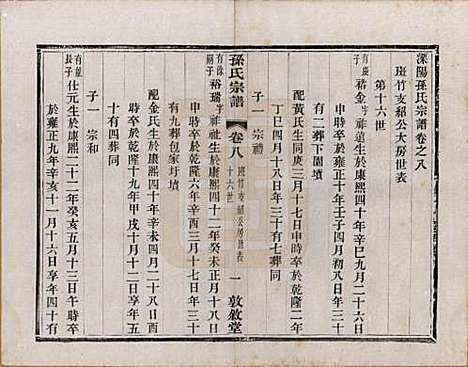 溧陽孫氏宗譜卷之八
斑竹支紹公大房世表
第十六世
有盛長子 裕金字祥道生於康熙四十年辛巳九月二十六日
申時卒於雍正十年壬子四月初八日年三十
有二葬下園墳
配黃氏生同庚三月十七日申時卒於乾隆二年
丁巳四月十八日年三十有七葬同
子一 宗禮
有 子 裕瑞字祥祉生於康熙四十二年癸未正月十八日
申時卒於乾隆六年辛酉三月十七日年三十
有九葬包家圩墳
孫氏宗譜 卷八 斑竹支紹公大房世表 十六世 一 敦敘堂
配金氏生於康熙四十年辛未四月二十八日酉
時卒於乾隆十九年甲戌十月十二日享年五
十有四葬同
子一 宗和
有 長子 仕元生於康熙二十二年癸亥五月十三日午時卒
於雍正九年辛亥十一月十六日享年四十有